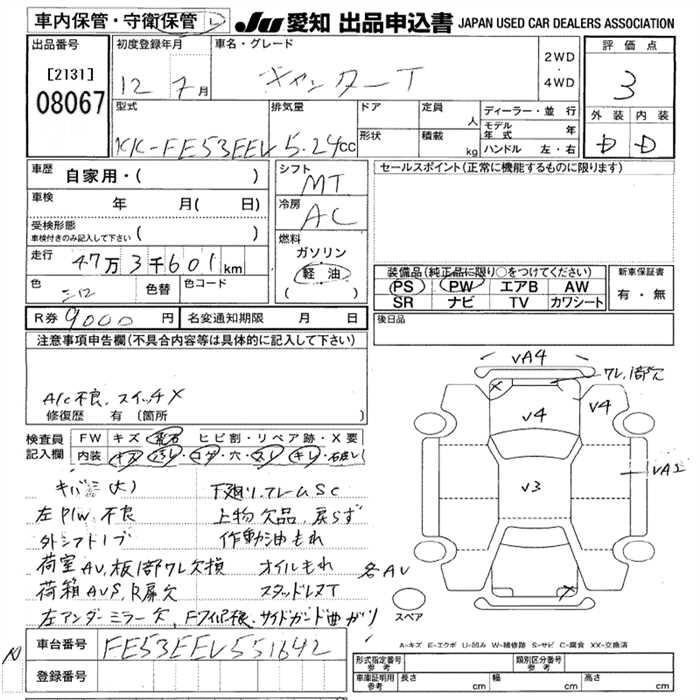 車内保管・守衛保管 L
JU 愛知 出品申込書 JAPAN USED CAR DEALERS ASSOCIATION
出品番号
[2131]
08067
初度登録年月
12 7月
車名・グレード
キャンターT
2WD
・
4WD
評価点
3
外装 内装
D D
型式
KK-FE53EEV
排気量
5.24cc
ドア
形状
定員
人
積載
kg
ディーラー・並行
モデル年式 年
ハンドル 左・右
車歴 自家用・( )
車検 年 月( 日)
受検形態
車検付きのみ記入して下さい ( )
走行 47万3千601km
色 色替 色コード
R券 9000円 名変通知期限 月 日
シフト
MT
冷房
AC
燃料
ガソリン
軽油
( )
セールスポイント(正常に機能するものに限ります)
装備品(純正品に限り○をつけてください)
PS PW エアB AW
SR ナビ TV カワシート
新車保証書
有・無
後日品
注意事項申告欄(不具合内容等は具体的に記入して下さい)
A/C不良、スイッチX
修復歴 有(箇所 )
検査員
記入欄
FW キズ 飛石 ヒビ割・リペア跡・X要
内装
キバミ(大)
左P/W、不良
外シフトノブ
荷室AV、板1部ワレ欠損
荷箱AVS、R扉欠
左アンダーミラー欠、Fワイパー機、サイドガード曲がり
下廻リ、フレームSC
上物欠品、戻らず
作動油もれ
オイルもれ
スタッドレスT
各AV
VA4
ワレ,1部欠
V4
V4
V3
スペア
A-キズ E-エクボ U-凹み W-補修跡 S-サビ C-腐食 XX-交換済
車台番号 FE53EEV551642
登録番号
形式指定番号
参考
類別区分番号
参考
車庫証明用
参考
長さ cm 幅 cm 高さ cm